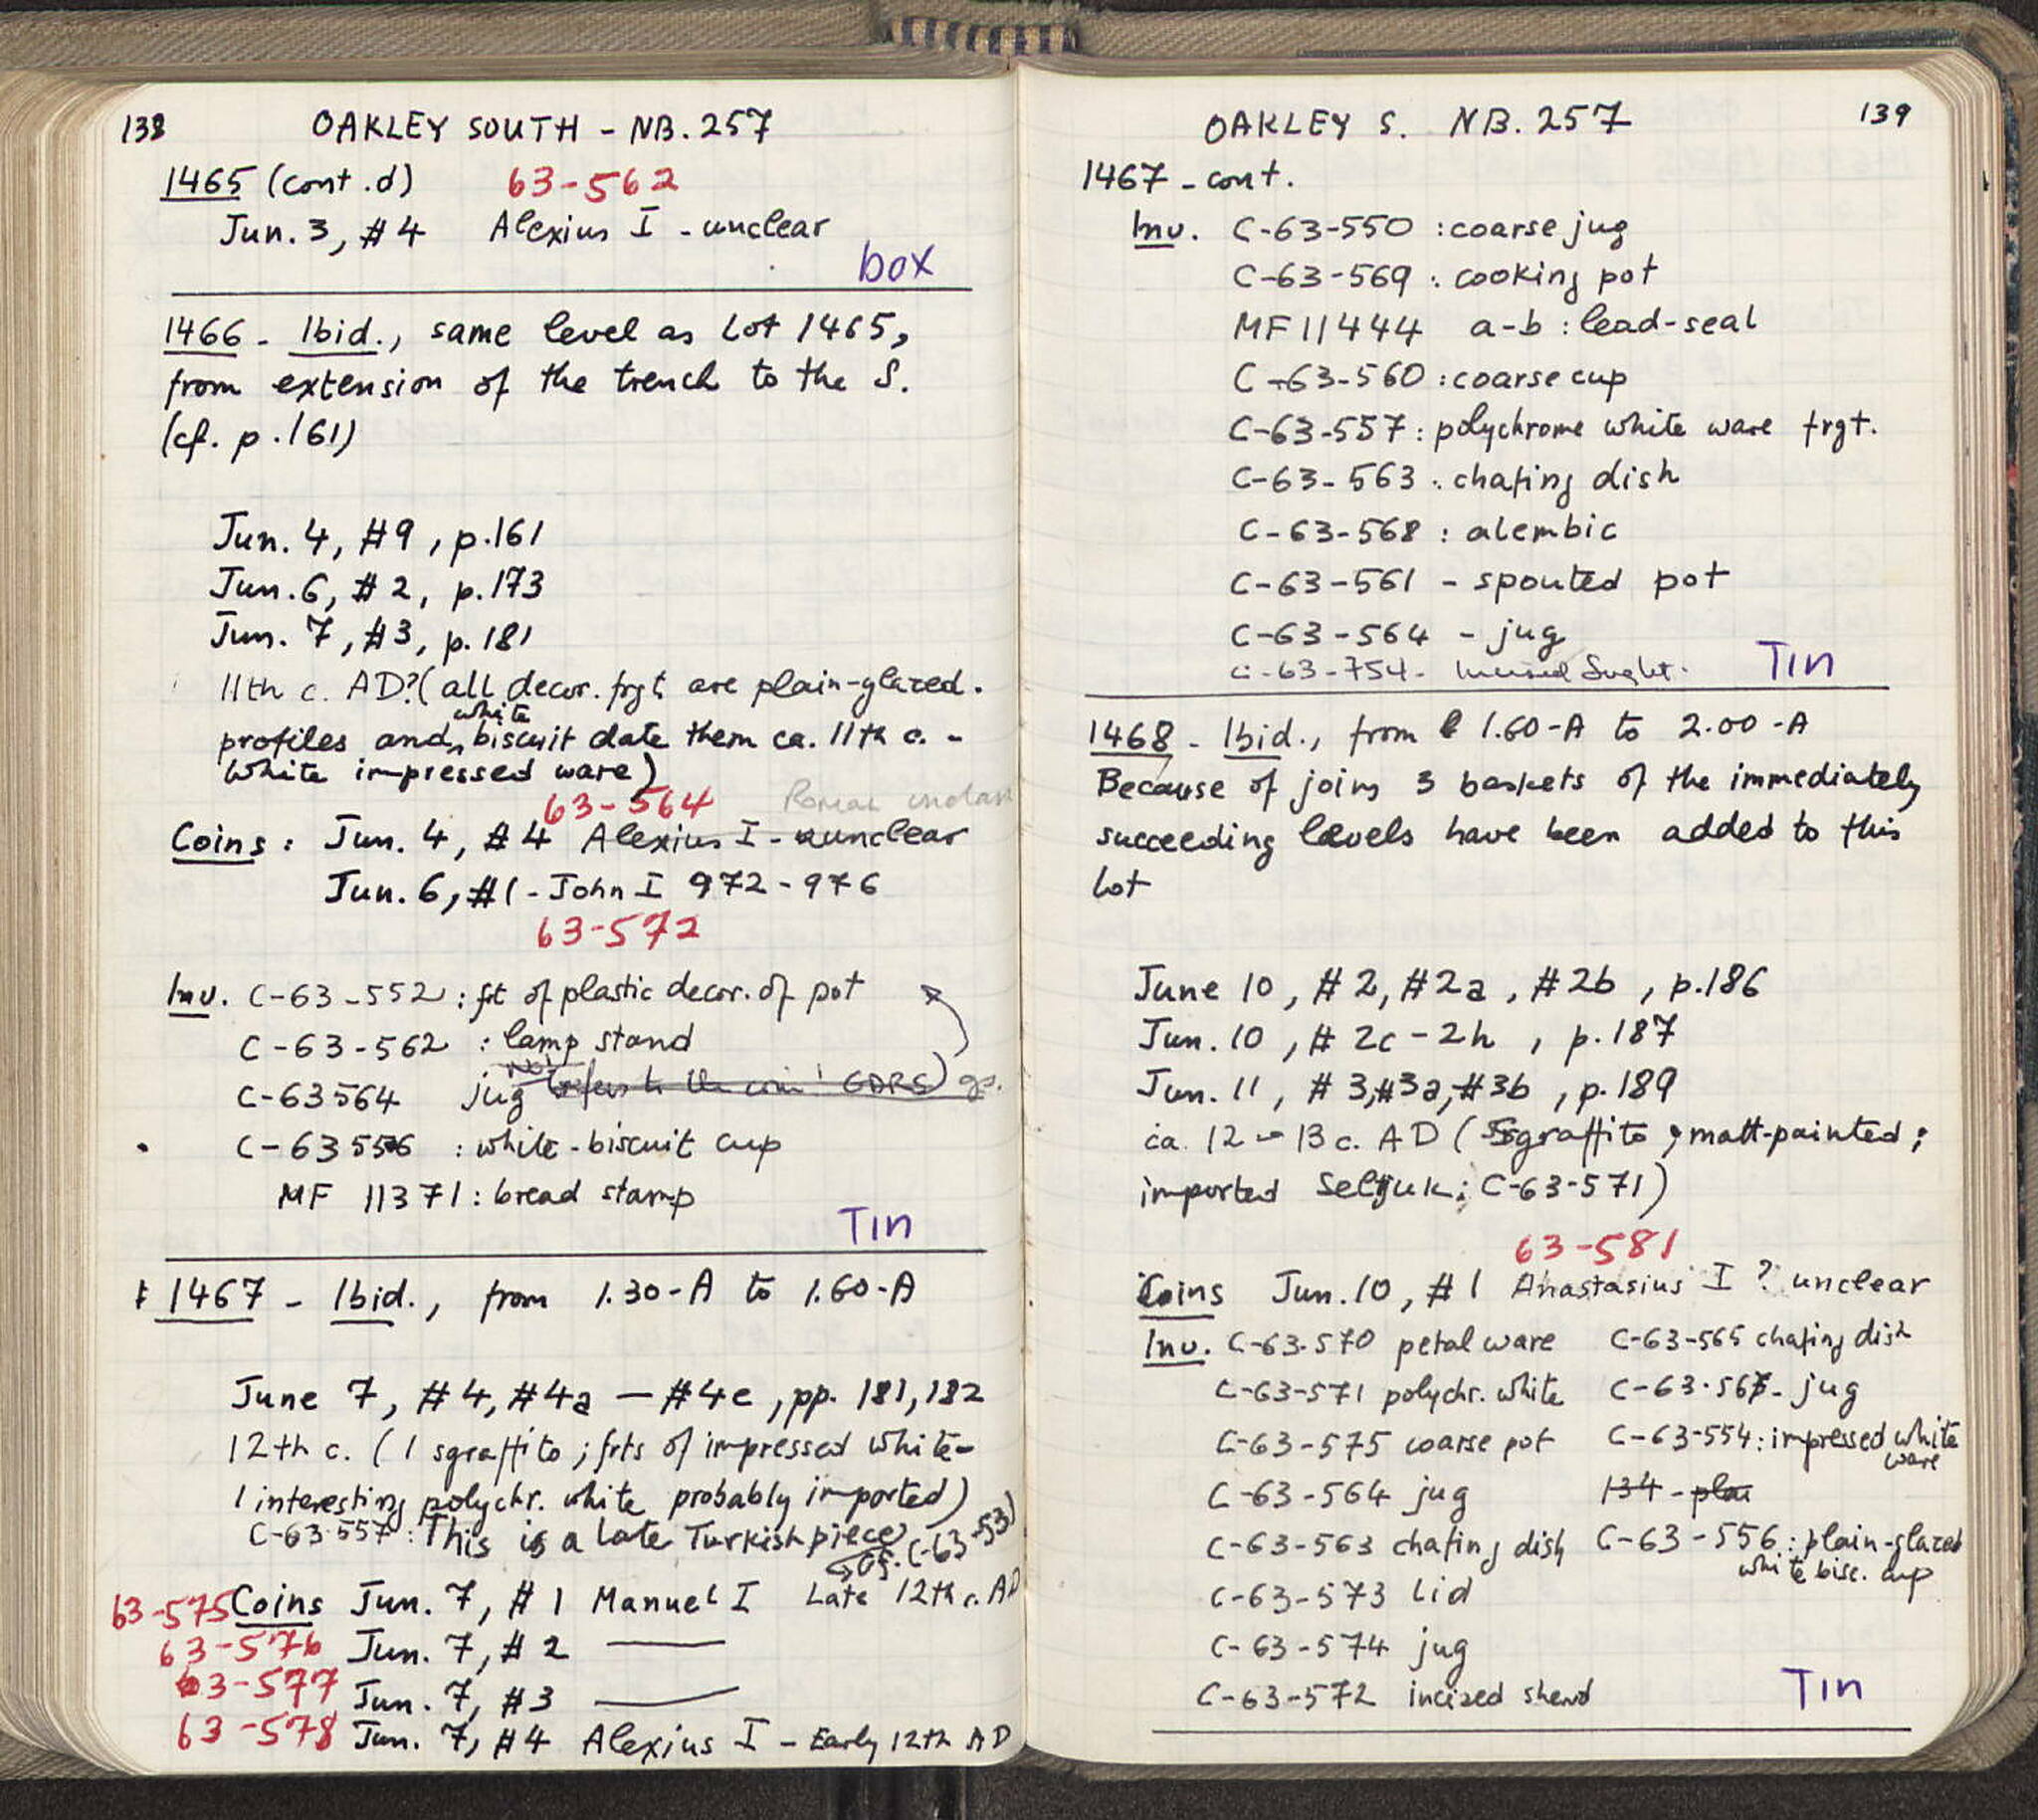 138
OAKLEY SOUTH - NB. 257
1465 (cont.d) 63-562
Jun. 3, #4 Alexius I - unclear
box
1466 - Ibid., same level as Lot 1465,
from extension of the trench to the S.
(cf. p. 161)
Jun. 4, #9, p.161
Jun. 6, #2, p.173
Jun. 7, #3, p.181
11th c. AD? (all decor. frgt are plain-glazed.
white
profiles and biscuit date them ca. 11th c. -
white impressed ware)
63-564 Roman
Coins: Jun. 4, #4 Alexius I - unclear
Jun. 6, #1 - John I 972-976
63-572
Inv. C-63-552: frt of plastic decor. of pot
C-63-562 : lamp stand
C-63564 jug (refers to the coin! GDRS)
C-63556 : white-biscuit cup
MF 11371: bread stamp
Tin
1467 - Ibid., from 1.30-A to 1.60-A
June 7, #4, #4a — #4e, pp. 181, 182
12th c. (1 sgraffito; frts of impressed white-
1 interesting polychr. white probably imported)
C-63-557: This is a late Turkish piece
cf. C-63-53)
63-575 Coins Jun. 7, #1 Manuel I Late 12th c. AD
63-576 Jun. 7, #2 ———
63-577 Jun. 7, #3 ———
63-578 Jun. 7, #4 Alexius I - Early 12th AD
OAKLEY S. NB. 257
139
1467 - cont.
Inv. C-63-550 : coarse jug
C-63-569 : cooking pot
MF 11444 a-b : lead-seal
C-63-560 : coarse cup
C-63-557 : polychrome white ware frgt.
C-63-563 : chafing dish
C-63-568 : alembic
C-63-561 - spouted pot
C-63-564 - jug
C-63-754 - Incised Sught.
Tin
1468 - Ibid., from 1.60-A to 2.00-A
Because of joins 3 baskets of the immediately
succeeding levels have been added to this
lot
June 10, #2, #2a, #2b, p.186
Jun. 10, #2c-2h, p.187
Jun. 11, #3, #3a, #3b, p.189
ca. 12-13 c. AD (Sgraffito; matt-painted;
imported Seljuk: C-63-571)
63-581
Coins Jun. 10, #1 Anastasius I? unclear
Inv. C-63-570 petal ware C-63-565 chafing dish
C-63-571 polychr. white C-63-567 - jug
C-63-575 coarse pot C-63-554: impressed white ware
C-63-564 jug 134 - plai
C-63-563 chafing dish C-63-556: plain-glazed
white bisc. cup
C-63-573 lid
C-63-574 jug
C-63-572 incized sherd
Tin